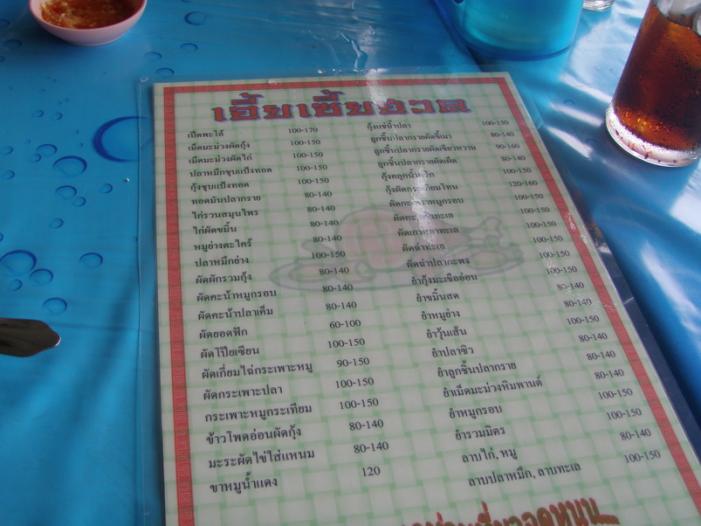 เป็ดพะโล้ 100-170
เม็ดมะม่วงผัดกุ้ง 100-150
เม็ดมะม่วงผัดไก่ 100-150
ปลาหมึกชุบแป้งทอด 100-150
กุ้งชุบแป้งทอด 100-150
ทอดมันปลากราย 80-140
ไก่รวนสมุนไพร 80-140
ไก่ผัดขมิ้น 80-140
หมูย่างตะไคร้ 80-140
ปลาหมึกย่าง 100-150
ผัดผักรวมกุ้ง 80-140
ผัดคะน้าหมูกรอบ 80-140
ผัดคะน้าปลาเค็ม 80-140
ผัดยอดฟัก 60-100
ผัดโป๊ยเซียน 100-150
ผัดเกี่ยมไฉ่กระเพาะหมู 90-150
ผัดกระเพาะปลา 100-150
กระเพาะหมูกระเทียม 100-150
ข้าวโพดอ่อนผัดกุ้ง 80-140
มะระผัดไข่ใส่แหนม 80-140
ขาหมูน้ำแดง 120
กุ้งแช่น้ำปลา 100-150
80-140
ลูกชิ้นปลากรายผัดเขียวหวาน 90-160
ลูกชิ้นปลากรายผัดเผ็ด 80-140
100-150
กุ้งผัดกระเทียมโทน 120-160
100-150
100-150
100-150
ผัดฉ่าทะเล 100-150
ผัดฉ่าปลากะพง 100-150
ยำกุ้งมะเขืออ่อน 100-150
ยำขมิ้นสด 80-140
ยำหมูย่าง 80-140
ยำวุ้นเส้น 100-150
ยำปลาซิว 80-140
ยำลูกชิ้นปลากราย 80-140
ยำเม็ดมะม่วงหิมพานต์ 80-140
ยำหมูกรอบ 80-140
ยำรวมมิตร 100-150
ลาบไก่, หมู 80-140
ลาบปลาหมึก, ลาบทะเล 100-150